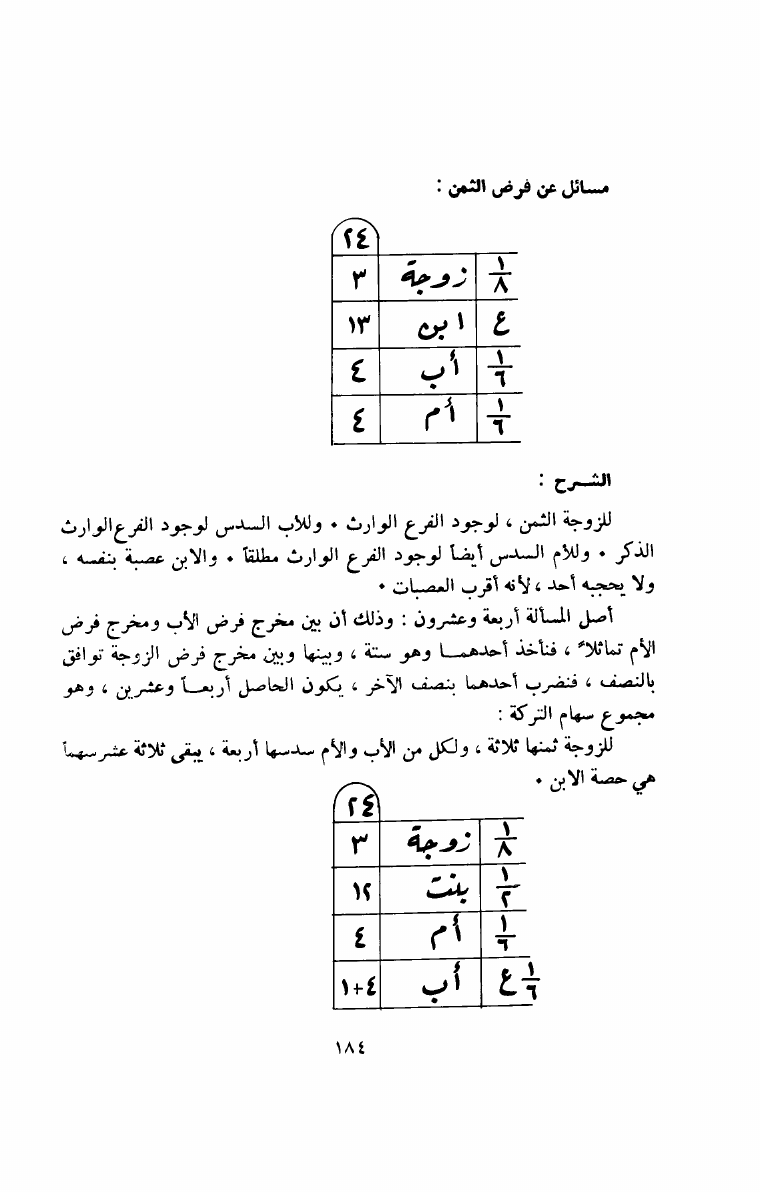 مسائل عن فرض الثمن :
٢٤
١/٨ زوجة ٣
ع ابن ١٣
١/٦ أب ٤
١/٦ أم ٤
الشـرح :
للزوجة الثمن ، لوجود الفرع الوارث . وللأب السدس لوجود الفرع الوارث
الذكر . وللأم السدس أيضاً لوجود الفرع الوارث مطلقاً . والابن عصبة بنفسه ،
ولا يحجبه أحد ، لأنه أقرب العصبات .
أصل المسألة أربعة وعشرون : وذلك أن بين مخرج فرض الأب ومخرج فرض
الأم تماثلاً ، فنأخذ أحدهمـا وهو ستة ، وبينها وبين مخرج فرض الزوجة توافق
بالنصف ، فنضرب أحدهما بنصف الآخر ، يكون الحاصل أربعـاً وعشرين ، وهو
مجموع سهام التركة :
للزوجة ثمنها ثلاثة ، ولكل من الأب والأم سدسها أربعة ، يبقى ثلاثة عشر سهماً
هي حصة الابن .
٢٤
١/٨ زوجة ٣
١/٢ بنت ١٢
١/٦ أم ٤
١/٦ ع أب ٤+١
١٨٤